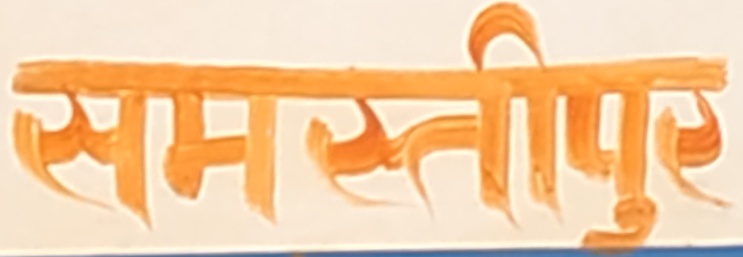 समस्तीपुर